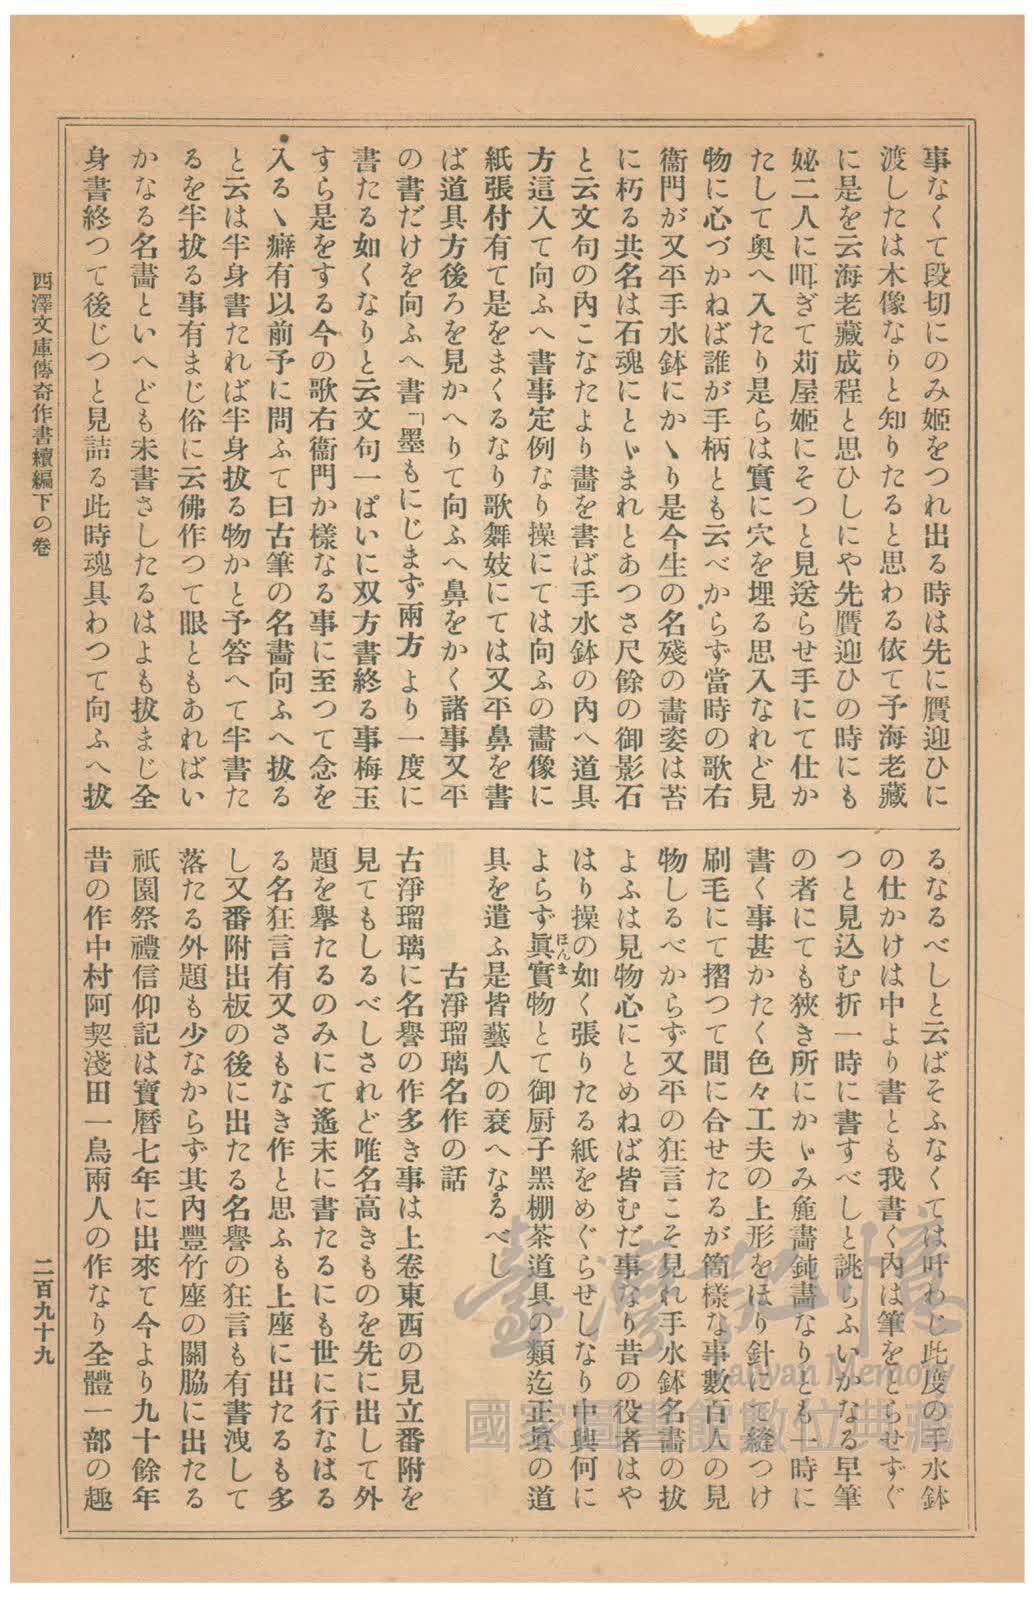 事なくて段切にのみ姬をつれ出る時は先に贋迎ひに
渡したは木像なりと知りたると思わる依て予海老藏
に是を云海老藏成程と思ひしにや先贋迎ひの時にも
妼二人に咡ぎて苅屋姬にそつと見送らせ手にて仕か
たして奧へ入たり是らは實に穴を埋る思入なれど見
物に心づかねば誰が手柄とも云べからず當時の歌右
衞門が又平手水鉢にかヽり是今生の名殘の畵姿は苔
に朽る共名は石魂にとヾまれとあつさ尺餘の御影石
と云文句の內こなたより畵を書ば手水鉢の內へ道具
方這入て向ふへ書事定例なり操にては向ふの畵像に
紙張付有て是をまくるなり歌舞妓にては又平鼻を書
ば道具方後ろを見かへりて向ふへ鼻をかく諸事又平
の書だけを向ふへ書「墨もにじまず兩方より一度に
書たる如くなりと云文句一ぱいに双方書終る事梅玉
すら是をする今の歌右衞門か樣なる事に至つて念を
入るヽ癖有以前予に問ふて曰古筆の名畵向ふへ拔る
と云は半身書たれば半身拔る物かと予答へて半書た
るを半拔る事有まじ俗に云佛作つて眼ともあればい
かなる名畵といへども未書さしたるはよも拔まじ全
身書終つて後じつと見詰る此時魂具わつて向ふへ拔
るなるべしと云ばそふなくては叶わじ此度の手水鉢
の仕かけは中より書とも我書く內は筆をとらせずぐ
つと見込む折一時に書すべしと誂らふいかなる早筆
の者にても狹き所にかヾみ麁畵鈍畵なりとも一時に
書く事甚かたく色々工夫の上形をほり針にて縫つけ
刷毛にて摺つて間に合せたるが箇樣な事數百人の見
物しるべからず又平の狂言こそ見れ手水鉢名畵の拔
よふは見物心にとめねば皆むだ事なり昔の役者はや
はり操の如く張りたる紙をめぐらせしなり中興何に
よらず眞實物とて御厨子黑棚茶道具の類迄正眞の道
ほんま
具を遣ふ是皆藝人の衰へなるべし
古淨瑠璃名作の話
古淨瑠璃に名譽の作多き事は上卷東西の見立番附を
見てもしるべしされど唯名高きものを先に出して外
題を擧たるのみにて遙末に書たるにも世に行なはる
る名狂言有又さもなき作と思ふも上座に出たるも多
し又番附出板の後に出たる名譽の狂言も有書洩して
落たる外題も少なからず其內豐竹座の關脇に出たる
祇園祭禮信仰記は寶曆七年に出來て今より九十餘年
昔の作中村阿契淺田一鳥兩人の作なり全體一部の趣
西澤文庫傳奇作書續編下の卷
二百九十九
臺灣記憶
Taiwan Memory
國家圖書館數位典藏